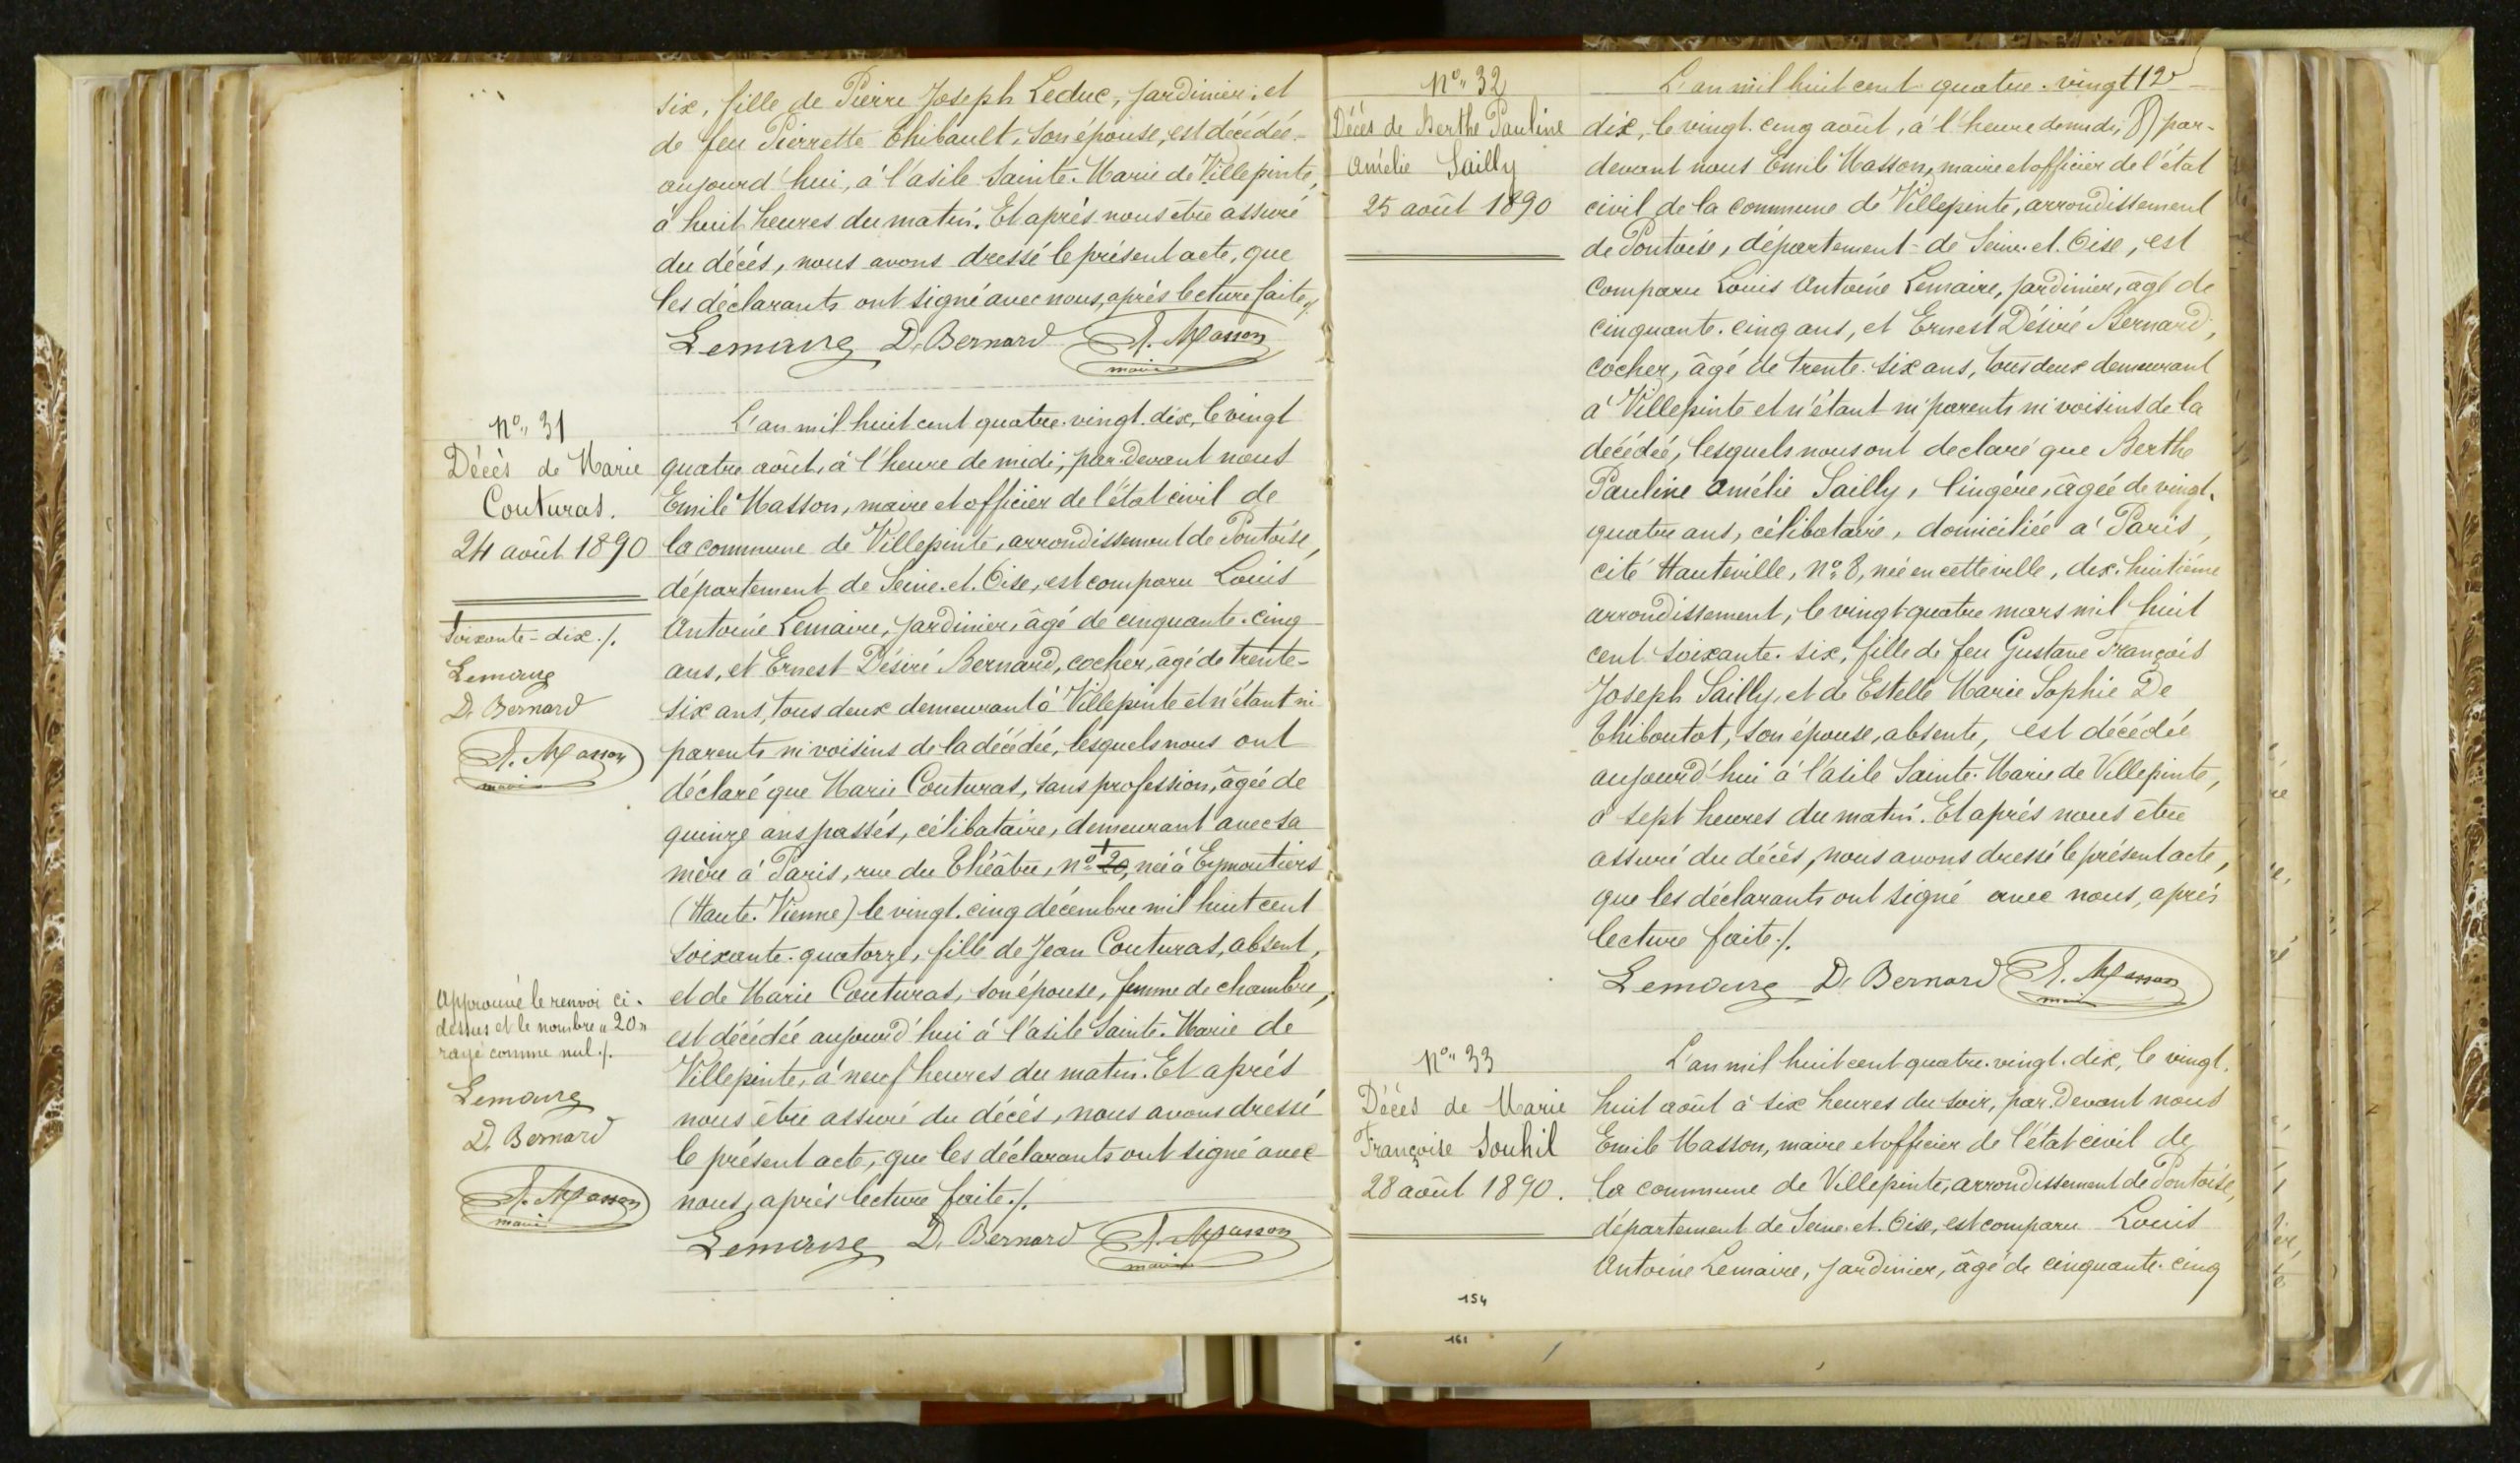 six, fille de Pierre Joseph Leduc, jardinier, et
de feu Pierrette Thibault, son épouse, est décédée
aujourd'hui, à l'asile Sainte-Marie de Villepinte,
à huit heures du matin. Et après nous être assuré
du décès, nous avons dressé le présent acte, que
les déclarants ont signé avec nous, après lecture faite ./.
Lemaire D. Bernard E. Masson
maire
N° 31
Décès de Marie
Couturas.
24 août 1890
soixante-dix ./.
Lemaire
D. Bernard
E. Masson
maire
Approuvé le renvoi ci-
dessus et le nombre « 20 »
rayé comme nul ./.
Lemaire
D. Bernard
E. Masson
maire
L'an mil huit cent quatre-vingt-dix, le vingt
quatre août, à l'heure de midi, par-devant nous
Emile Masson, maire et officier de l'état civil de
la commune de Villepinte, arrondissement de Pontoise,
département de Seine-et-Oise, est comparu Louis
Antoine Lemaire, jardinier, âgé de cinquante-cinq
ans, et Ernest Désiré Bernard, cocher, âgé de trente-
six ans, tous deux demeurant à Villepinte et n'étant ni
parents ni voisins de la décédée, lesquels nous ont
déclaré que Marie Couturas, sans profession, âgée de
quinze ans passés, célibataire, demeurant avec sa
mère à Paris, rue du Théâtre, n° 20, née à Eymoutiers
(Haute-Vienne) le vingt-cinq décembre mil huit cent
soixante-quatorze, fille de Jean Couturas, absent,
et de Marie Couturas, son épouse, femme de chambre,
est décédée aujourd'hui à l'asile Sainte-Marie de
Villepinte, à neuf heures du matin. Et après
nous être assuré du décès, nous avons dressé
le présent acte, que les déclarants ont signé avec
nous, après lecture faite ./.
Lemaire D. Bernard E. Masson
maire
N° 32
Décès de Berthe Pauline
Amélie Sailly
25 août 1890
L'an mil huit cent quatre-vingt 12
dix, le vingt-cinq août, à l'heure de midi, par-
devant nous Emile Masson, maire et officier de l'état
civil de la commune de Villepinte, arrondissement
de Pontoise, département de Seine-et-Oise, est
comparu Louis Antoine Lemaire, jardinier, âgé de
cinquante-cinq ans, et Ernest Désiré Bernard,
cocher, âgé de trente-six ans, tous deux demeurant
à Villepinte et n'étant ni parents ni voisins de la
décédée, lesquels nous ont declaré que Berthe
Pauline Amélie Sailly, lingère, âgée de vingt-
quatre ans, célibataire, domiciliée à Paris,
cité Hauteville, n° 8, née en cette ville, dix-huitième
arrondissement, le vingt-quatre mars mil huit
cent soixante-six, fille de feu Gustave François
Joseph Sailly, et de Estelle Marie Sophie De
Thiboutot, son épouse, absente, est décédée
aujourd'hui à l'asile Sainte-Marie de Villepinte,
à sept heures du matin. Et après nous être
assuré du décès, nous avons dressé le présent acte,
que les déclarants ont signé avec nous, après
lecture faite ./.
Lemaire D. Bernard E. Masson
maire
N° 33
Décès de Marie
Françoise Souhil
28 août 1890.
L'an mil huit cent quatre-vingt-dix, le vingt-
huit août à six heures du soir, par-devant nous
Emile Masson, maire et officier de l'état civil de
la commune de Villepinte, arrondissement de Pontoise,
département de Seine-et-Oise, est comparu Louis
Antoine Lemaire, jardinier, âgé de cinquante-cinq
154
161